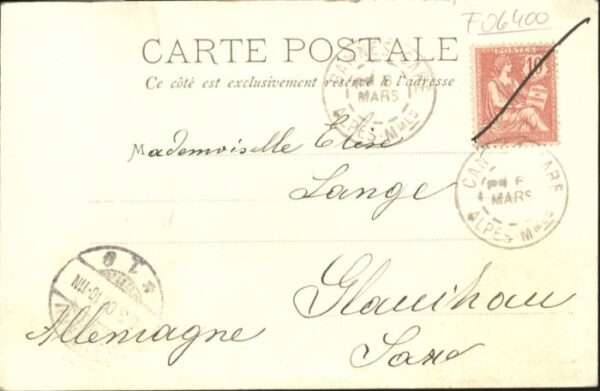 F06400
CARTE POSTALE
Ce côté est exclusivement réservé à l'adresse
POSTES
10
CANNES GARE
6
MARS
ALPES-Mmes
Mademoiselle Elise
Lange
CANNES GARE
6
MARS
ALPES-Mmes
Glauchau
Allemagne
Saxe